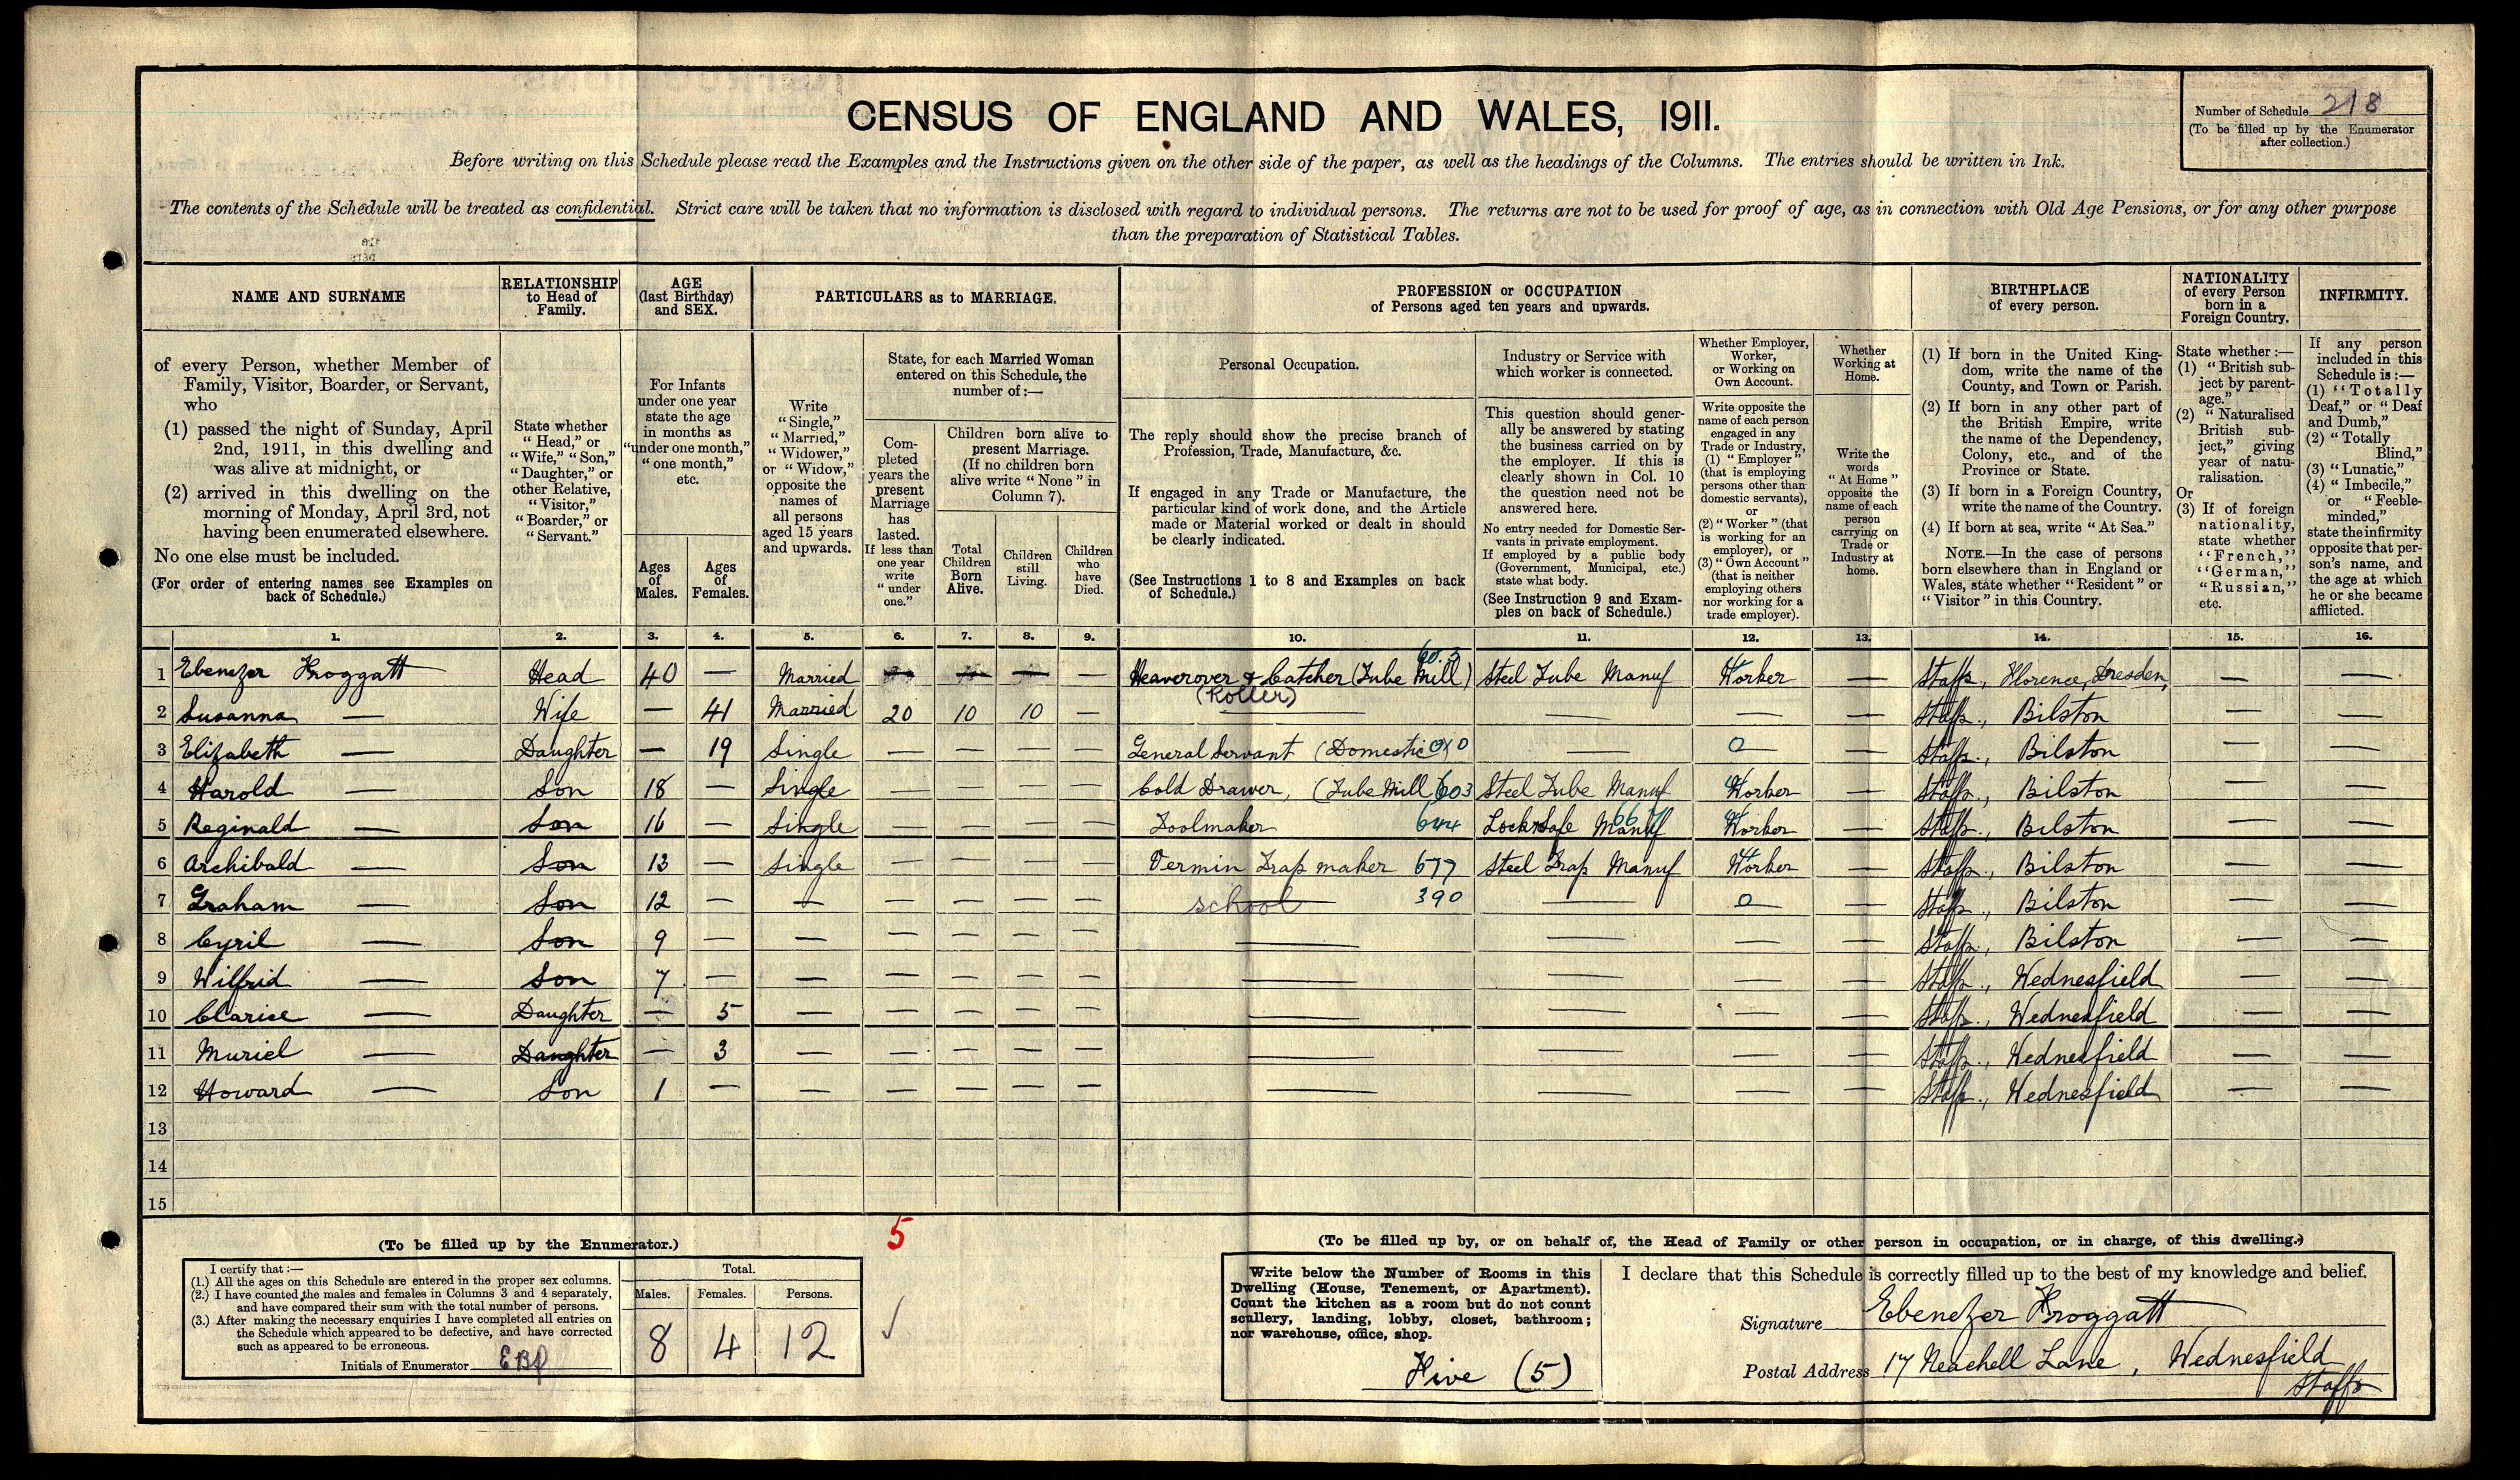 CENSUS OF ENGLAND AND WALES, 1911.
Number of Schedule 218
(To be filled up by the Enumerator after collection.)
Before writing on this Schedule please read the Examples and the Instructions given on the other side of the paper, as well as the headings of the Columns. The entries should be written in Ink.
The contents of the Schedule will be treated as confidential. Strict care will be taken that no information is disclosed with regard to individual persons. The returns are not to be used for proof of age, as in connection with Old Age Pensions, or for any other purpose
than the preparation of Statistical Tables.
NAME AND SURNAME
of every Person, whether Member of Family, Visitor, Boarder, or Servant, who
(1) passed the night of Sunday, April 2nd, 1911, in this dwelling and was alive at midnight, or
(2) arrived in this dwelling on the morning of Monday, April 3rd, not having been enumerated elsewhere.
No one else must be included.
(For order of entering names see Examples on back of Schedule.)
RELATIONSHIP to Head of Family.
State whether "Head," or "Wife," "Son," "Daughter," or other Relative, "Visitor," "Boarder," or "Servant."
AGE (last Birthday) and SEX.
For Infants under one year state the age in months as "under one month," "one month," etc.
Ages of Males.
Ages of Females.
PARTICULARS as to MARRIAGE.
Write "Single," "Married," "Widower," or "Widow," opposite the names of all persons aged 15 years and upwards.
State, for each Married Woman entered on this Schedule, the number of:—
Completed years the present Marriage has lasted. If less than one year write "under one."
Children born alive to present Marriage. (If no children born alive write "None" in Column 7).
Total Children Born Alive.
Children still Living.
Children who have Died.
PROFESSION or OCCUPATION
of Persons aged ten years and upwards.
Personal Occupation.
The reply should show the precise branch of Profession, Trade, Manufacture, &c.
If engaged in any Trade or Manufacture, the particular kind of work done, and the Article made or Material worked or dealt in should be clearly indicated.
(See Instructions 1 to 8 and Examples on back of Schedule.)
Industry or Service with which worker is connected.
This question should generally be answered by stating the business carried on by the employer. If this is clearly shown in Col. 10 the question need not be answered here.
No entry needed for Domestic Servants in private employment. If employed by a public body (Government, Municipal, etc.) state what body.
(See Instruction 9 and Examples on back of Schedule.)
Whether Employer, Worker, or Working on Own Account.
Write opposite the name of each person engaged in any Trade or Industry, (1) "Employer" (that is employing persons other than domestic servants), or (2) "Worker" (that is working for an employer), or (3) "Own Account" (that is neither employing others nor working for a trade employer).
Whether Working at Home.
Write the words "At Home" opposite the name of each person carrying on Trade or Industry at home.
BIRTHPLACE of every person.
(1) If born in the United Kingdom, write the name of the County, and Town or Parish.
(2) If born in any other part of the British Empire, write the name of the Dependency, Colony, etc., and of the Province or State.
(3) If born in a Foreign Country, write the name of the Country.
(4) If born at sea, write "At Sea."
NOTE.—In the case of persons born elsewhere than in England or Wales, state whether "Resident" or "Visitor" in this Country.
NATIONALITY of every Person born in a Foreign Country.
State whether:—
(1) "British subject by parentage."
(2) "Naturalised British subject," giving year of naturalisation.
Or
(3) If of foreign nationality, state whether "French," "German," "Russian," etc.
INFIRMITY.
If any person included in this Schedule is:—
(1) "Totally Deaf," or "Deaf and Dumb,"
(2) "Totally Blind,"
(3) "Lunatic,"
(4) "Imbecile," or "Feeble-minded,"
state the infirmity opposite that person's name, and the age at which he or she became afflicted.
1. 2. 3. 4. 5. 6. 7. 8. 9. 10. 11. 12. 13. 14. 15. 16.
1 Ebenezer Froggatt Head 40 — Married — Heaverover & Catcher (Tube Mill) 603 Steel Tube Manuf Worker — Staffs., Florence, Dresden, — —
(Roller)
2 Susanna — Wife — 41 Married 20 10 10 — — — — — Staffs., Bilston — —
3 Elizabeth — Daughter — 19 Single — — — — General Servant (Domestic) 010 — 0 — Staffs., Bilston — —
4 Harold — Son 18 — Single — — — — Cold Drawer, (Tube Mill) 603 Steel Tube Manuf Worker — Staffs., Bilston — —
5 Reginald — Son 16 — Single — — — — Toolmaker 644 Lock & Safe Manuf Worker — Staffs., Bilston — —
6 Archibald — Son 13 — Single — — — — Vermin Trap maker 677 Steel Trap Manuf Worker — Staffs., Bilston — —
7 Graham — Son 12 — — — — — — school 390 — 0 — Staffs., Bilston — —
8 Cyril — Son 9 — — — — — — — — — — Staffs., Bilston — —
9 Wilfrid — Son 7 — — — — — — — — — — Staffs., Wednesfield — —
10 Clarice — Daughter — 5 — — — — — — — — — Staffs., Wednesfield — —
11 Muriel — Daughter — 3 — — — — — — — — — Staffs., Wednesfield — —
12 Howard — Son 1 — — — — — — — — — — Staffs., Wednesfield — —
13
14
15
5
(To be filled up by the Enumerator.)
I certify that:—
(1.) All the ages on this Schedule are entered in the proper sex columns.
(2.) I have counted the males and females in Columns 3 and 4 separately, and have compared their sum with the total number of persons.
(3.) After making the necessary enquiries I have completed all entries on the Schedule which appeared to be defective, and have corrected such as appeared to be erroneous.
Initials of Enumerator
Total.
Males. Females. Persons.
8 4 12
(To be filled up by, or on behalf of, the Head of Family or other person in occupation, or in charge, of this dwelling.)
Write below the Number of Rooms in this Dwelling (House, Tenement, or Apartment). Count the kitchen as a room but do not count scullery, landing, lobby, closet, bathroom; nor warehouse, office, shop.
Five (5)
I declare that this Schedule is correctly filled up to the best of my knowledge and belief.
Signature Ebenezer Froggatt
Postal Address 17 Neachell Lane, Wednesfield
Staffs